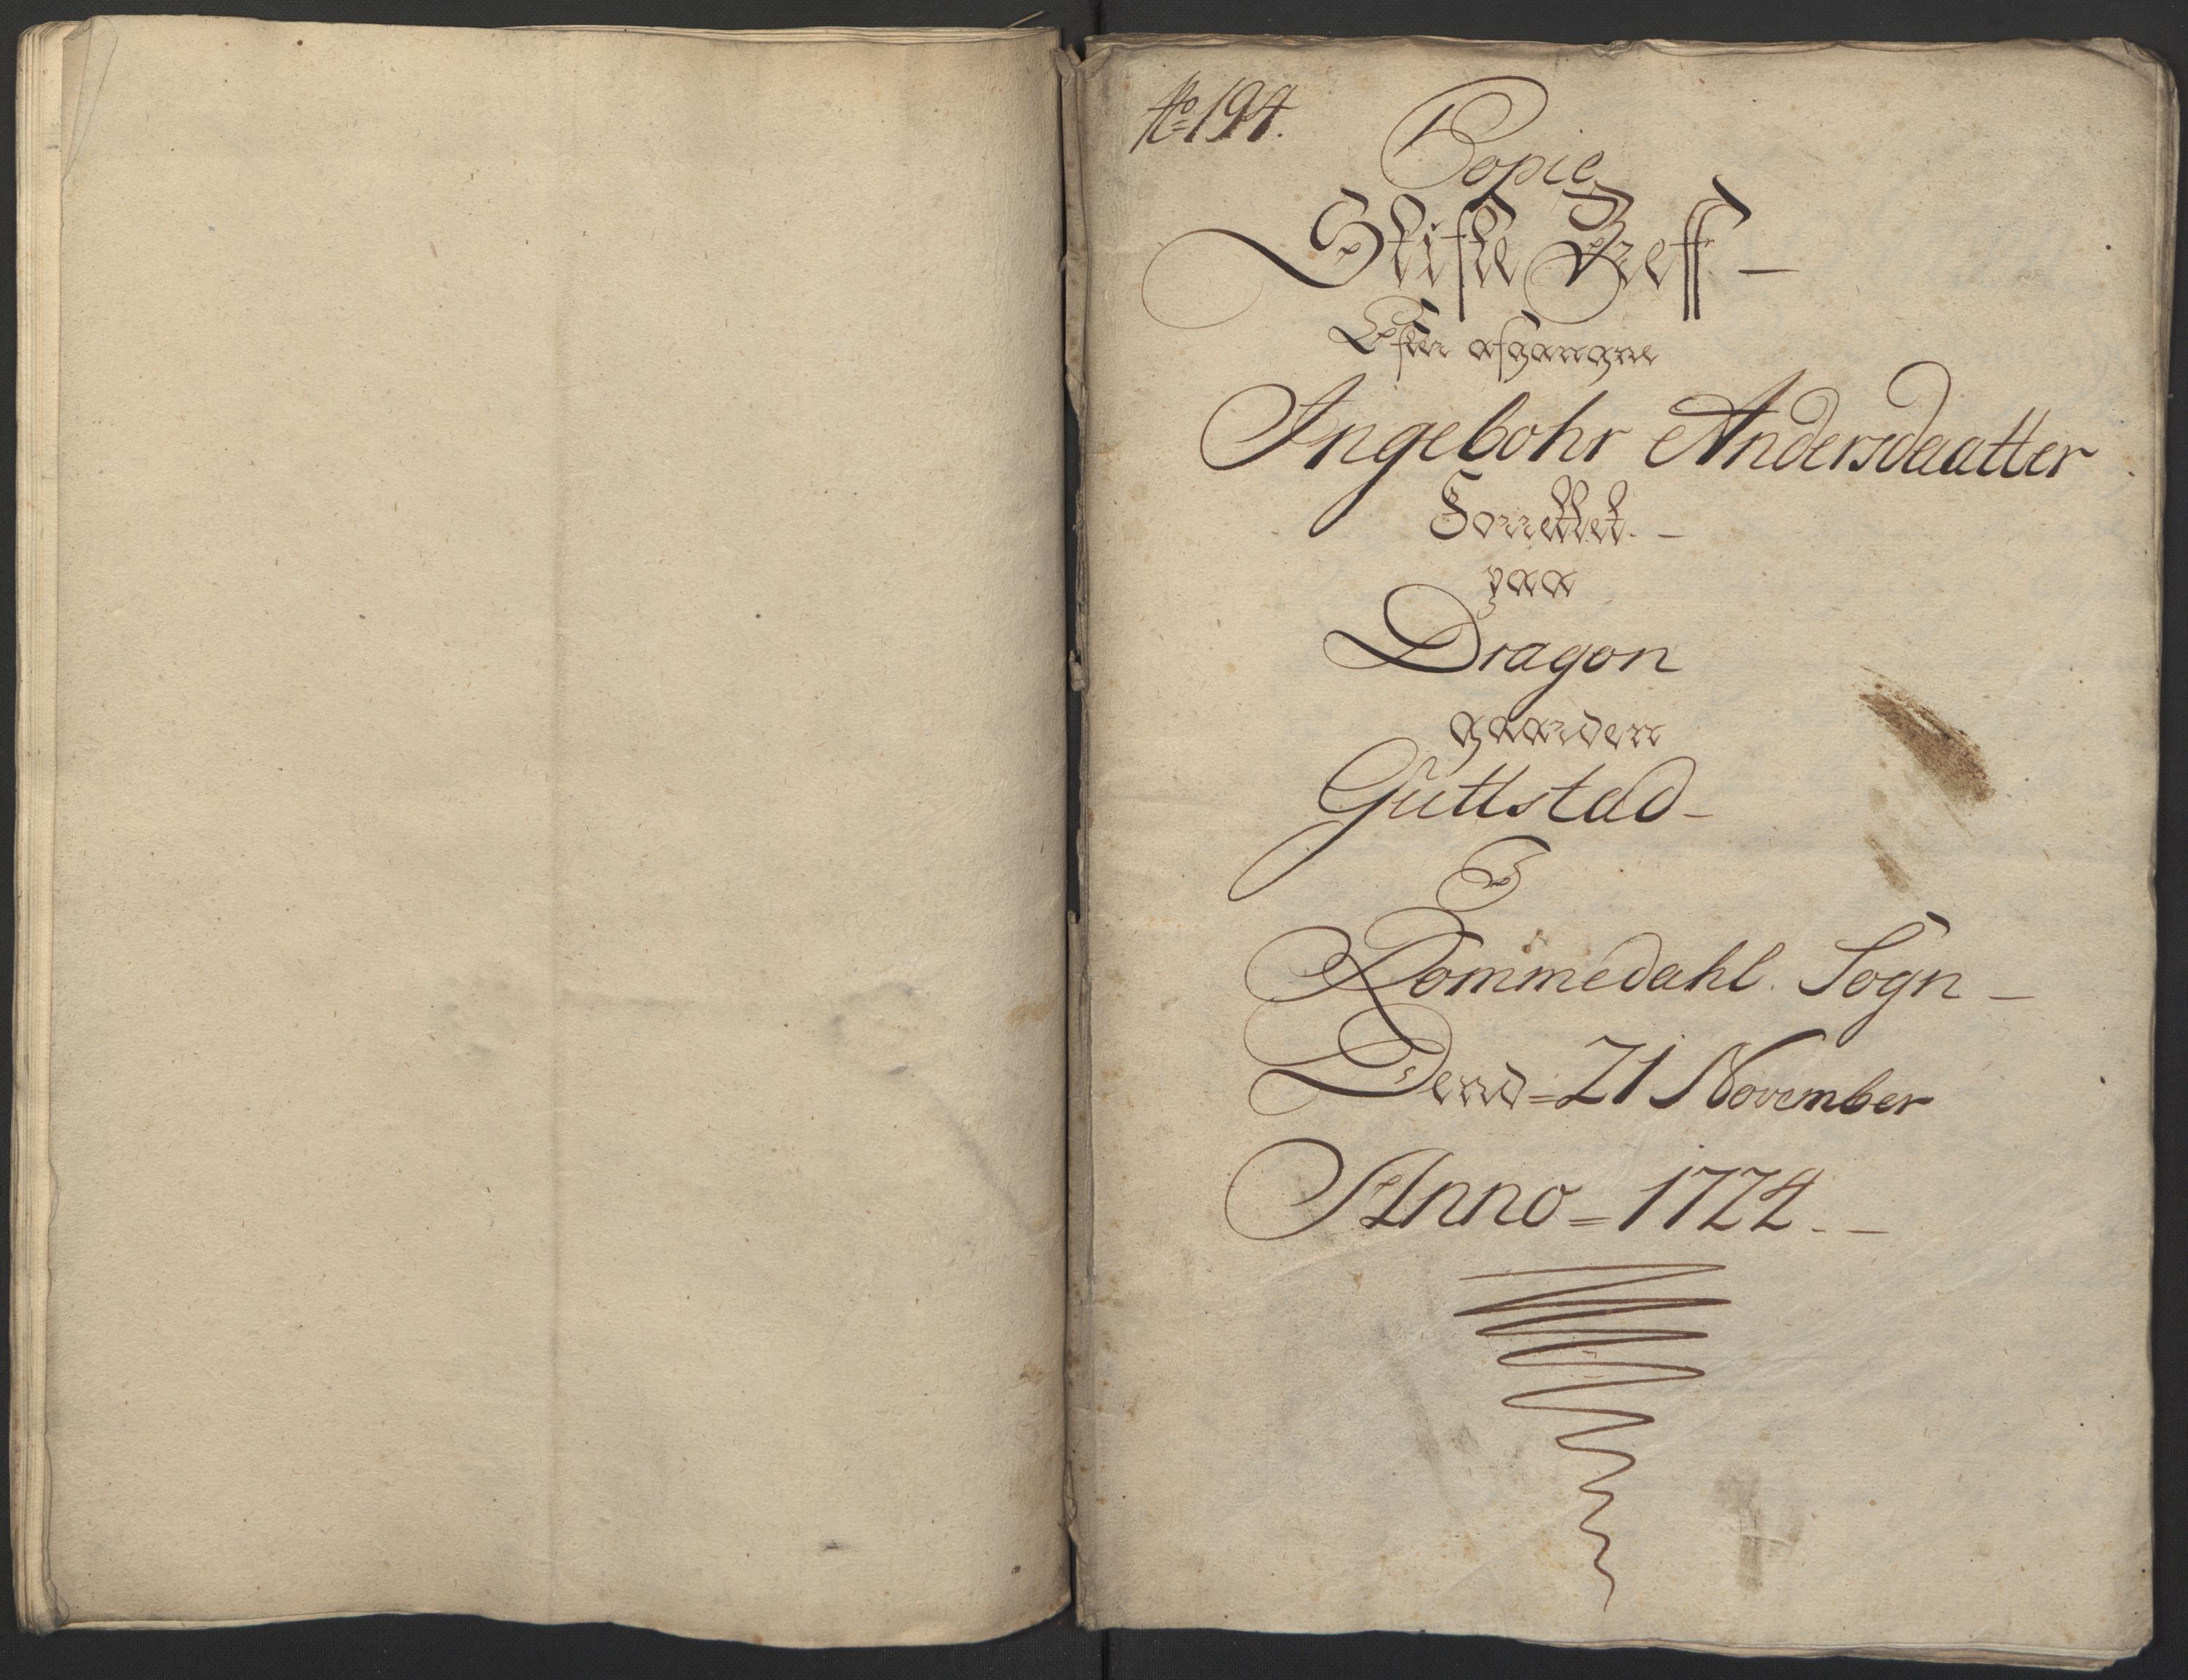 No 194.
Copie
Skifte Breff –
Efter afgangne
Ingebohr Andersdaatter
Forrettet. –
paa
Dragon
gaarden
Guttstad –
I
Rommedahl. Sogn –
Dend = 21 November
Anno = 1724. –